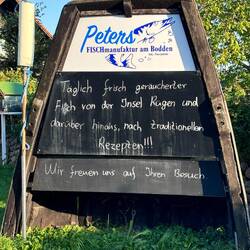 Peters
FISCHmanufaktur am Bodden
Täglich frisch geräucherter
Fisch von der Insel Rügen und
darüber hinaus, nach traditionellen
Rezepten!!!
Wir freuen uns auf Ihren Besuch